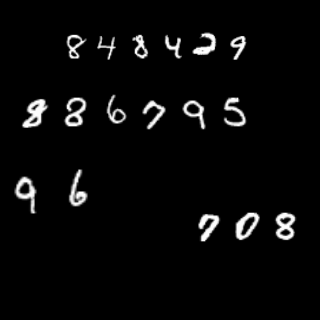 848429
886795
96
708